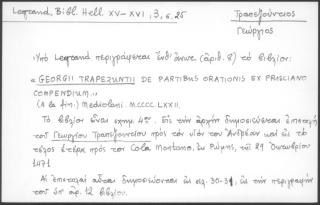 Legrand, Bibl. Hell. XV-XVI, 3, σ. 25
Τραπεζούντιος
Γεώργιος
Ὑπὸ Legrand περιγράφεται ὑπ' ἄνω (ἀριθ. 8) τὸ βιβλίον:
« GEORGII TRAPEZUNTII DE PARTIBUS ORATIONIS EX PRISCIANO
COMPENDIUM.»
(A la fin.) Mediolani. MCCCC LXXII.
Τὸ βιβλίον εἶναι σχημ. 4ον. Εἰς τὴν ἀρχὴν δημοσιεύεται ἐπιστολὴ
τοῦ Γεωργίου Τραπεζουντίου πρὸς τὸν υἱόν του Ἀνδρέαν καὶ εἰς τὸ
τέλος ἑτέρα πρὸς τὸν Cola Montano, ἐν Ρώμῃ, τῇ 29 Ὀκτωβρίου
1471
Αἱ ἐπιστολαὶ αὗται δημοσιεύονται ἐν σελ. 30-31, εἰς τὴν περιγραφὴν
τοῦ ὑπ' ἀρ. 12 βιβλίου.